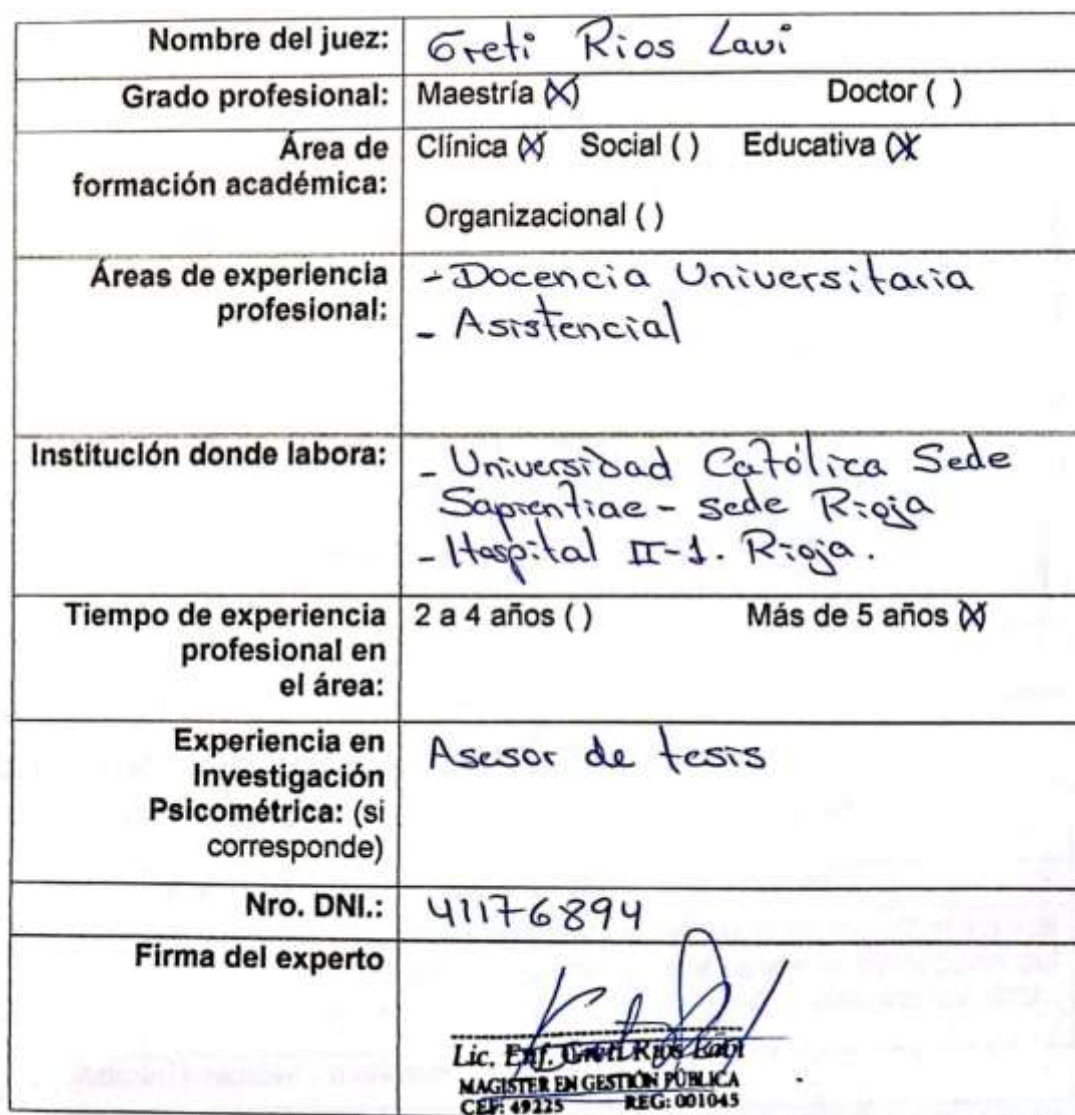 Nombre del juez: Greti Rios Lavi
Grado profesional: Maestría (X) Doctor ( )
Área de formación académica: Clínica (X) Social ( ) Educativa (X)
Organizacional ( )
Áreas de experiencia profesional: - Docencia Universitaria
- Asistencial
Institución donde labora: - Universidad Católica Sede
Sapientiae - sede Rioja
- Hospital II-1. Rioja.
Tiempo de experiencia profesional en el área: 2 a 4 años ( ) Más de 5 años (X)
Experiencia en Investigación Psicométrica: (si corresponde) Asesor de tesis
Nro. DNI.: 41176894
Firma del experto
Lic. Enf. Greti Rios Labi
MAGISTER EN GESTIÓN PÚBLICA
CEP: 49225 REG: 001045